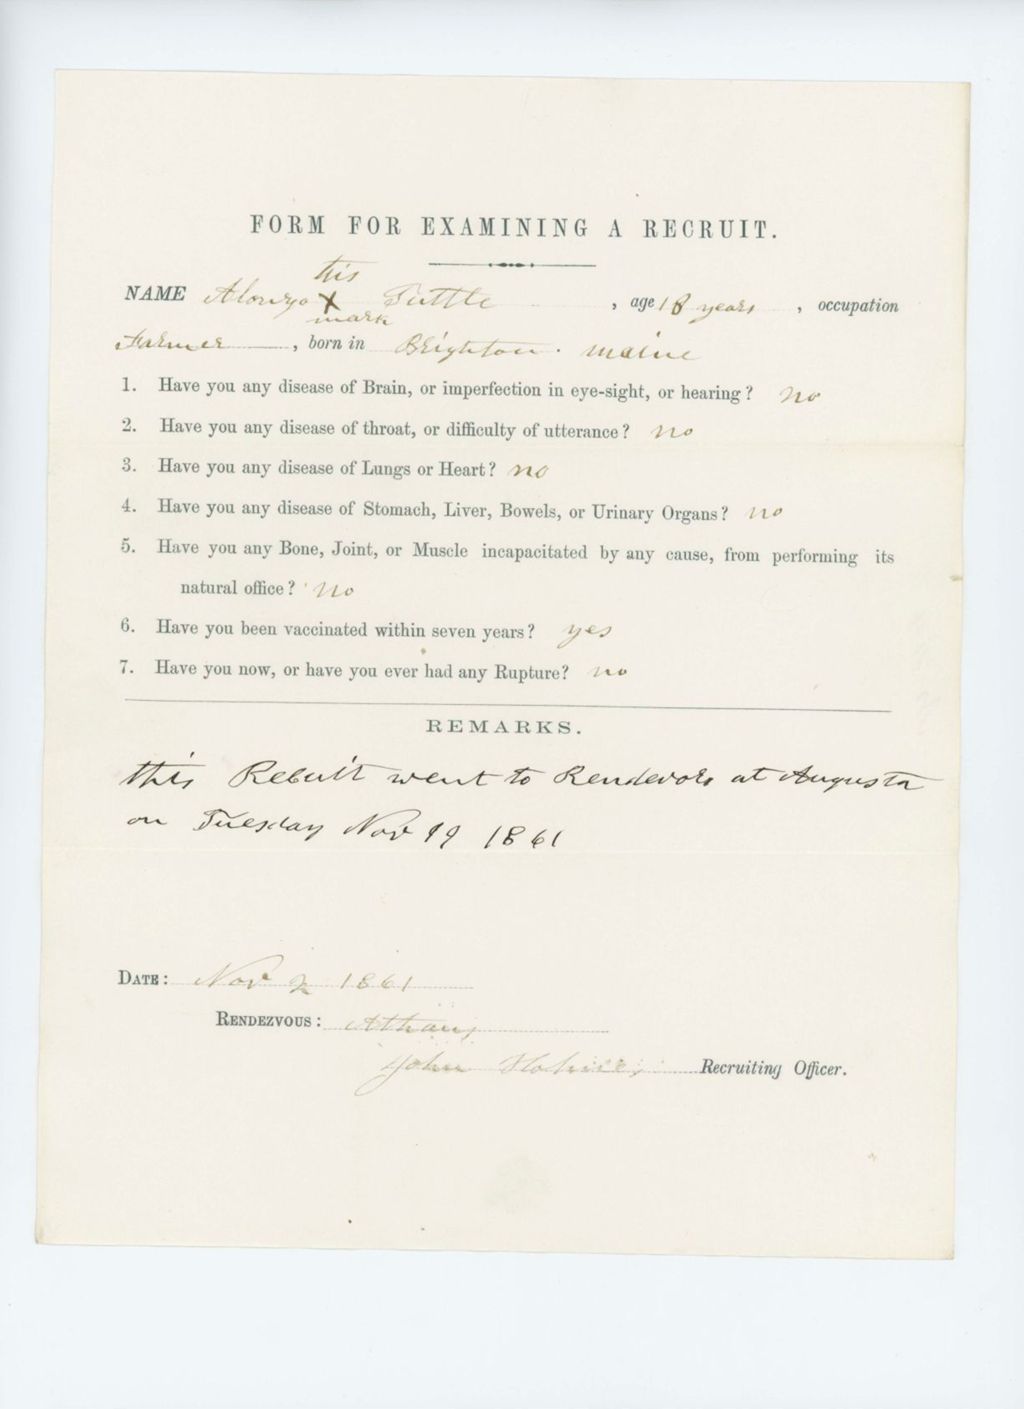 FORM FOR EXAMINING A RECRUIT.
his
NAME Alonzo X Tuttle , age 18 years , occupation
mark
Farmer , born in Brighton . maine
1. Have you any disease of Brain, or imperfection in eye-sight, or hearing? no
2. Have you any disease of throat, or difficulty of utterance? no
3. Have you any disease of Lungs or Heart? no
4. Have you any disease of Stomach, Liver, Bowels, or Urinary Organs? no
5. Have you any Bone, Joint, or Muscle incapacitated by any cause, from performing its
natural office? no
6. Have you been vaccinated within seven years? yes
7. Have you now, or have you ever had any Rupture? no
REMARKS.
this went to at Augusta
on Tuesday Nov 19 1861
DATE: Nov 2 1861
RENDEZVOUS: Athens
John Recruiting Officer.